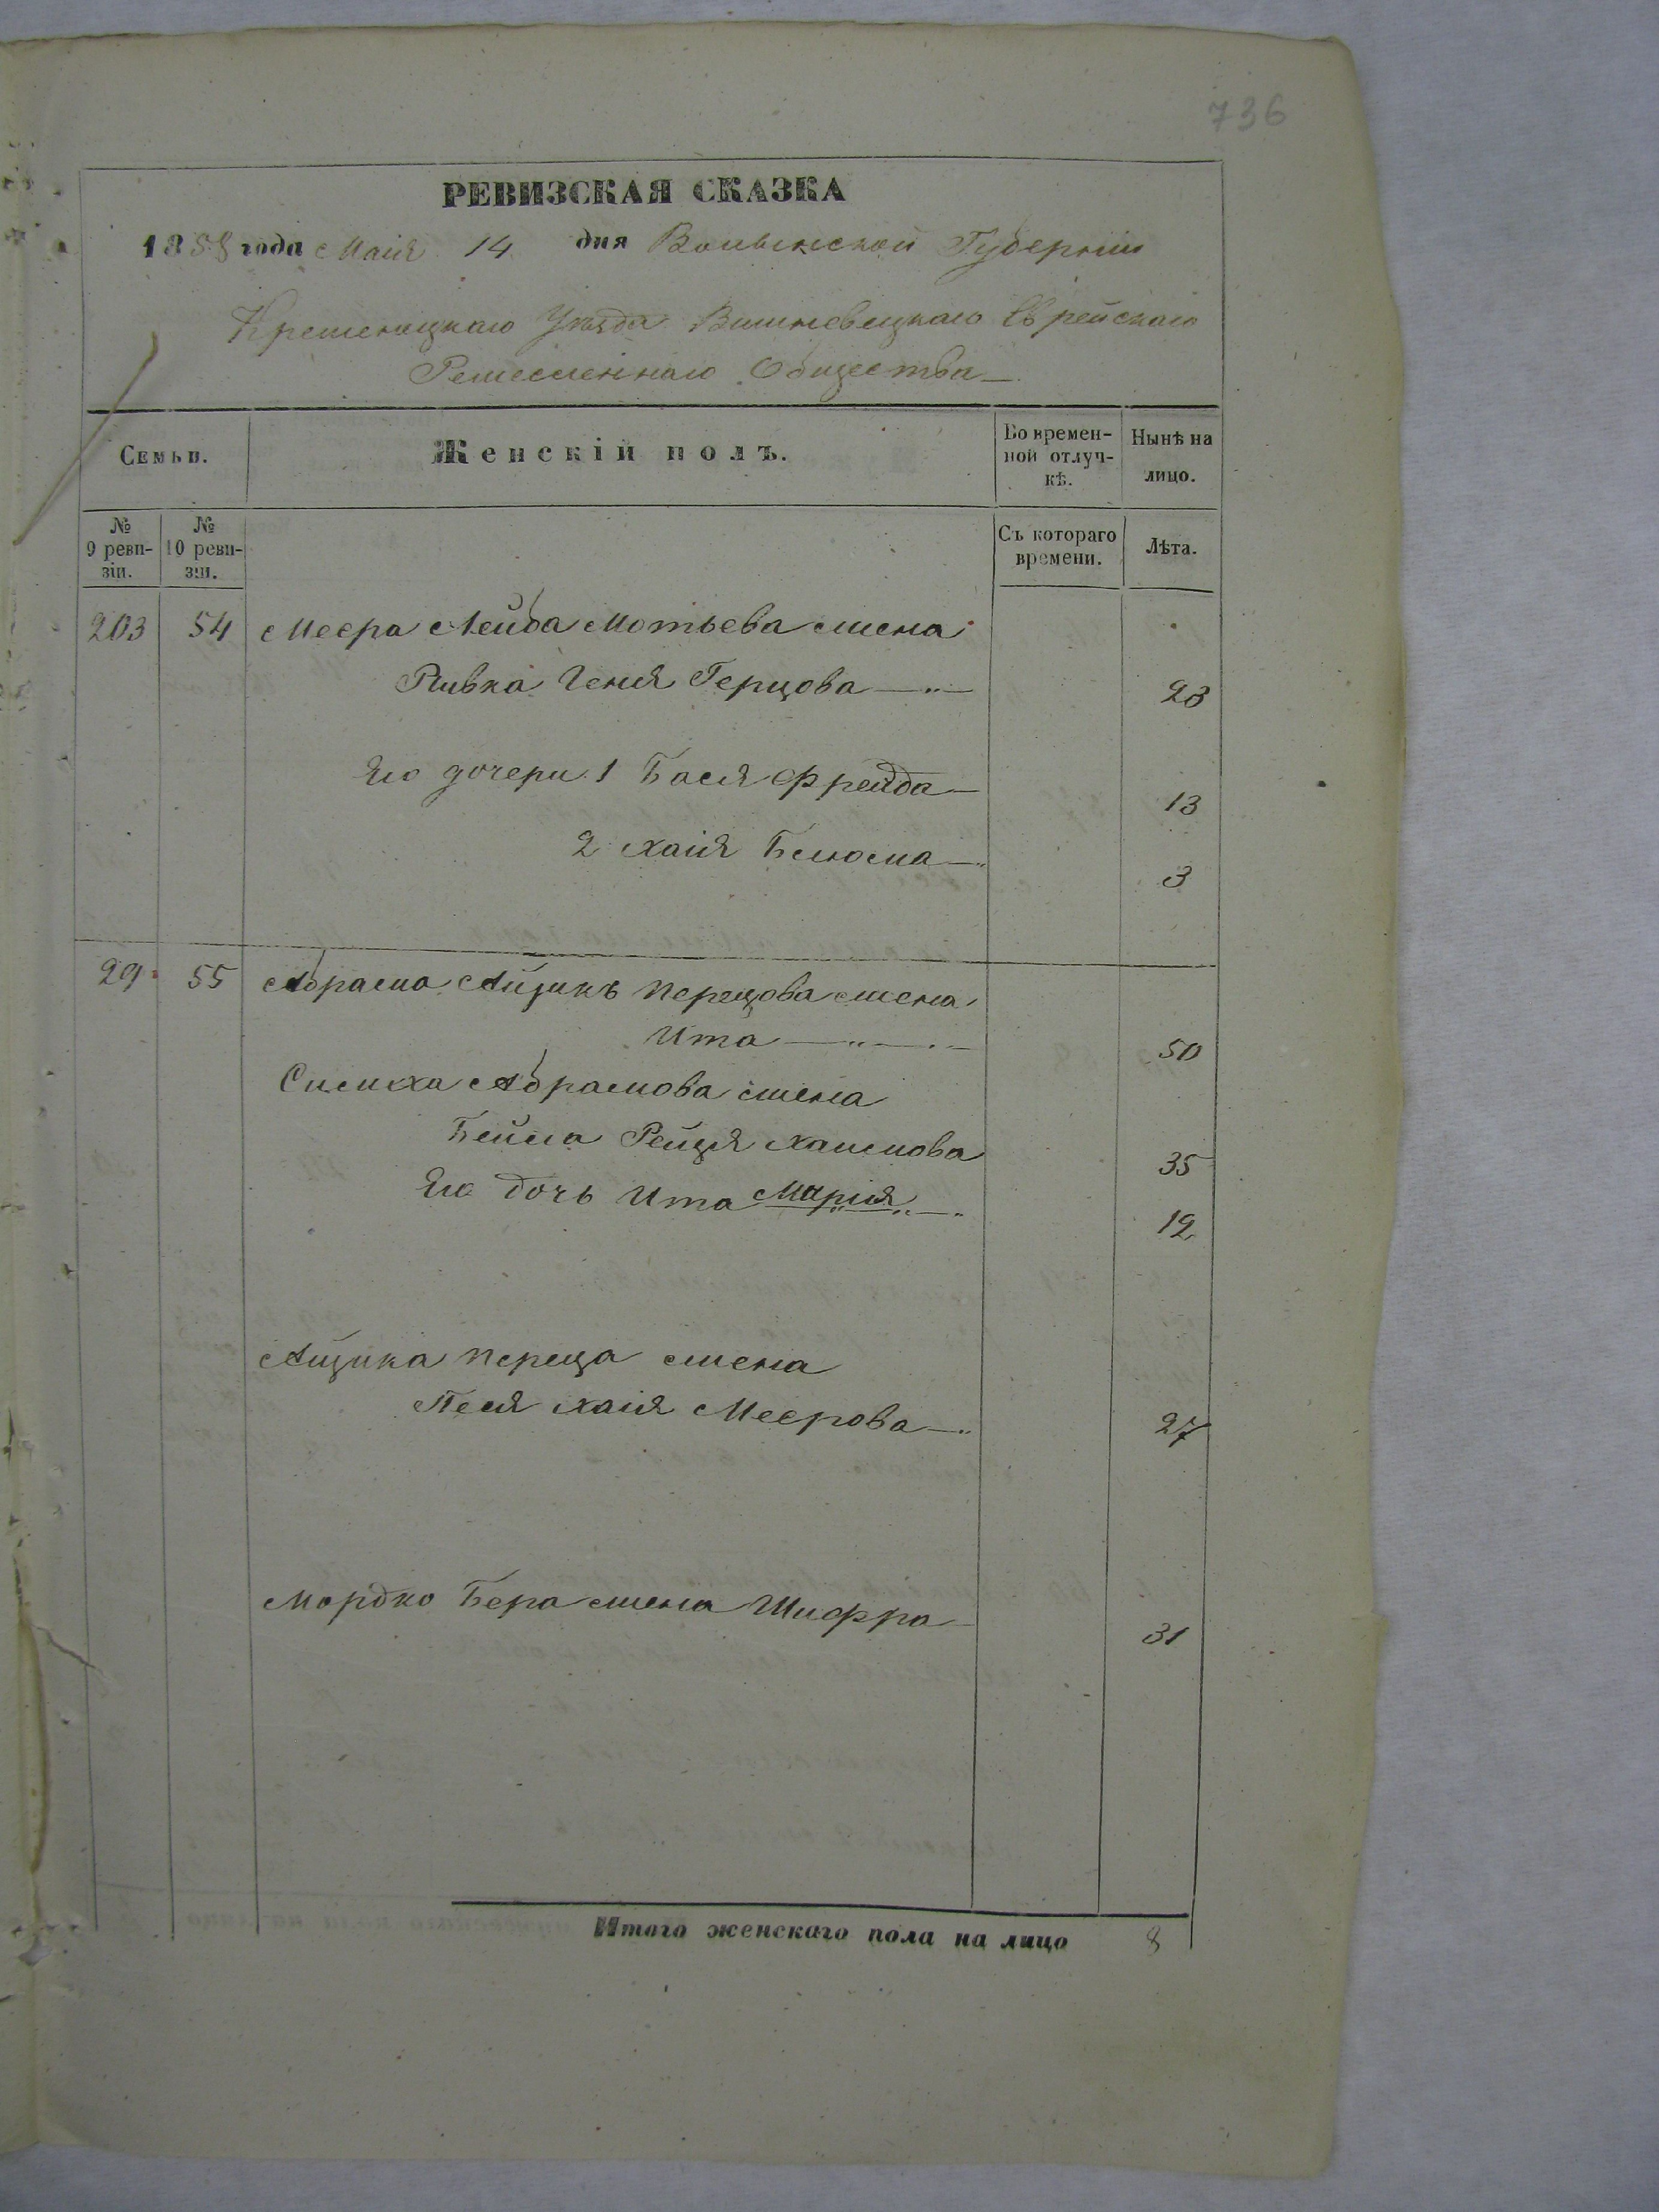 736
РЕВИЗСКАЯ СКАЗКА
1858 года Маія 14 дня Волынской Губерніи
Кременецкаго Уѣзда Вишневецкаго Еврейскаго
Ремесленнаго Общества
Семьи.
Женскій полъ.
Во времен-
ной отлуч-
кѣ.
Нынѣ на
лицо.
№
9 реви-
зіи.
№
10 реви-
зіи.
Съ котораго
времени.
Лѣта.
203 54 Меера Лейба Мотьева жена
Ривка Геня Герцова —„— 23
Его дочери 1 Бася Фрейда — 13
2 Хаія Блюма —„ 3
29 55 Абрама Айзикъ Перецова жена
Ита —„— 50
Симха Абрамова жена
Бейла Рейзя Хаимова 35
Его дочь Ита Марія —„— 12
Айзика Переца жена
Песя Хаія Меерова —„ 27
Мордко Бера жена Шифра 31
Итого женскаго пола на лицо 8